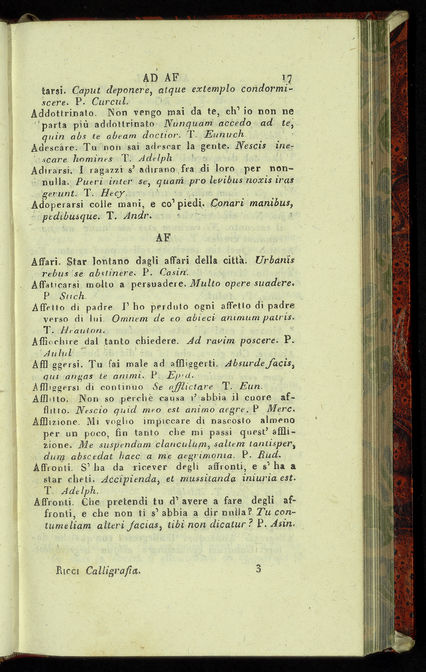 AD AF 17
tarsi. Caput deponere, atque extemplo condormi-
scere. P. Curcul.
Addottrinato. Non vengo mai da te, ch' io non ne
parta più addottrinato Nunquam accedo ad te,
quin abs te abeam doctior. T. Eunuch
Adescare. Tu non sai adescar la gente. Nescis ine-
scare homines T. Adelph
Adirarsi. I ragazzi s' adirano fra di loro per non-
nulla. Pueri inter se, quam pro levibus noxis iras
gerunt. T. Hecy.
Adoperarsi colle mani, e co' piedi. Conari manibus,
pedibusque. T. Andr.
AF
Affari. Star lontano dagli affari della città. Urbanis
rebus se abstinere. P. Casin.
Affaticarsi molto a persuadere. Multo opere suadere.
P Stich.
Affetto di padre I' ho perduto ogni affetto di padre
verso di lui. Omnem de eo abieci animum patris.
T. Heauton.
Affiochire dal tanto chiedere. Ad ravim poscere. P.
Aulul
Affliggersi. Tu fai male ad affliggerti. Absurde facis,
qui angas te animi. P. Epid.
Affliggersi di continuo Se afflictare T. Eun.
Afflitto. Non so perchè causa t' abbia il cuore af-
flitto. Nescio quid meo est animo aegre. P Merc.
Afflizione. Mi voglio impiccare di nascosto almeno
per un poco, fin tanto che mi passi quest' affli-
zione. Me suspendam clanculum, saltem tantisper,
dum abscedat haec a me aegrimonia. P. Rud.
Affronti. S' ha da ricever degli affronti, e s' ha a
star cheti. Accipienda, et mussitanda iniuria est.
T. Adelph.
Affronti. Che pretendi tu d' avere a fare degli af-
fronti, e che non ti s' abbia a dir nulla? Tu con-
tumeliam alteri facias, tibi non dicatur? P. Asin.
Ricci Calligrafia. 3